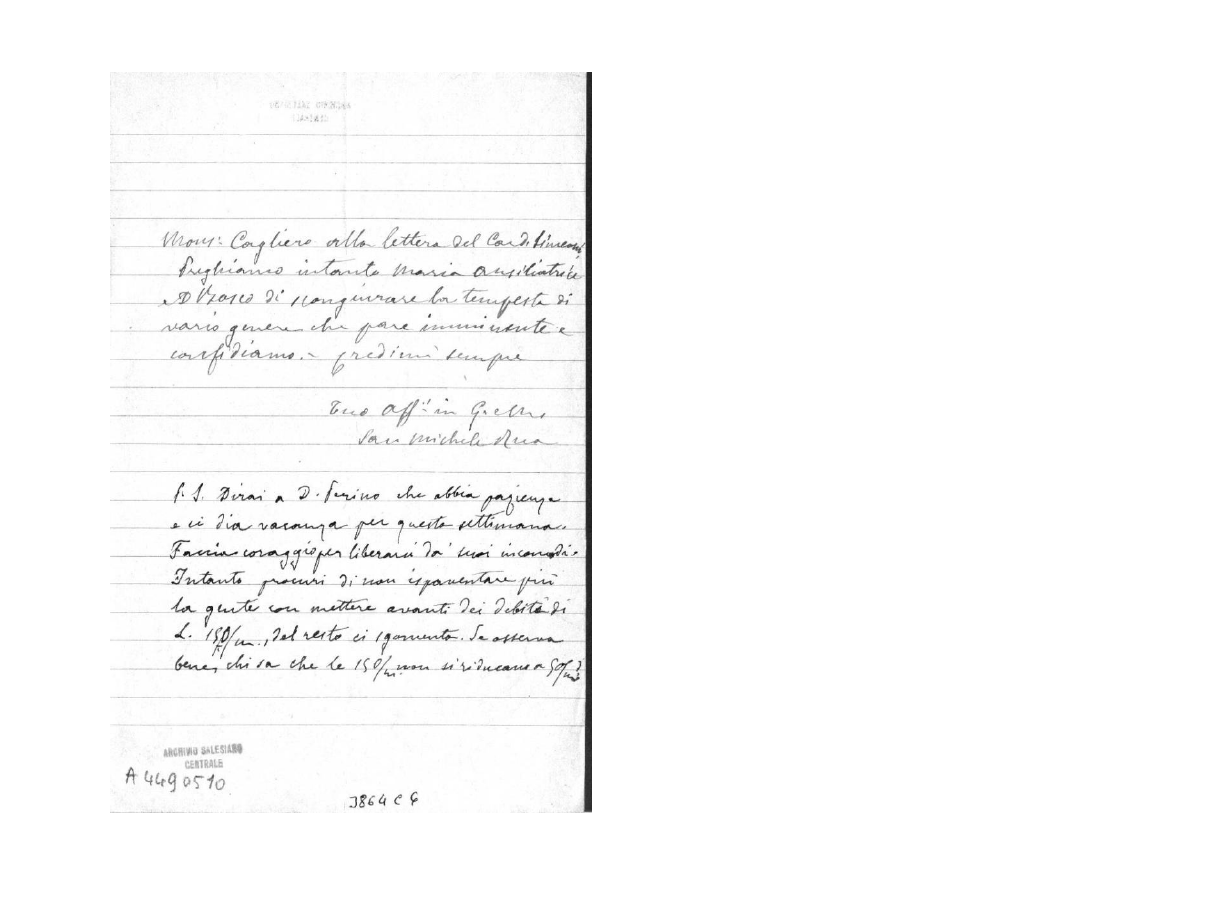 Mons: Cagliero alla lettera del Card. Simeoni
Preghiamo intanto Maria Ausiliatrice
e D Bosco di scongiurare la tempesta di
vario genere che pare imminente e
confidiamo. - Credimi sempre
Tuo Aff.: in G. e M.
Sac Michele Rua
P. S. Dirai a D. Perino che abbia pazienza
e ci dia vacanza per questa settimana.
Faccia coraggio per liberarsi da' suoi incomodi.
Intanto procuri di non ispaventare più
la gente con mettere avanti dei debiti di
L. 150/m., del resto ci sgomenta. Se osserva
bene, chi sa che le 150/m. non si riducano a 50/m
ARCHIVIO SALESIANO
CENTRALE
A 4490510
3864 C 6